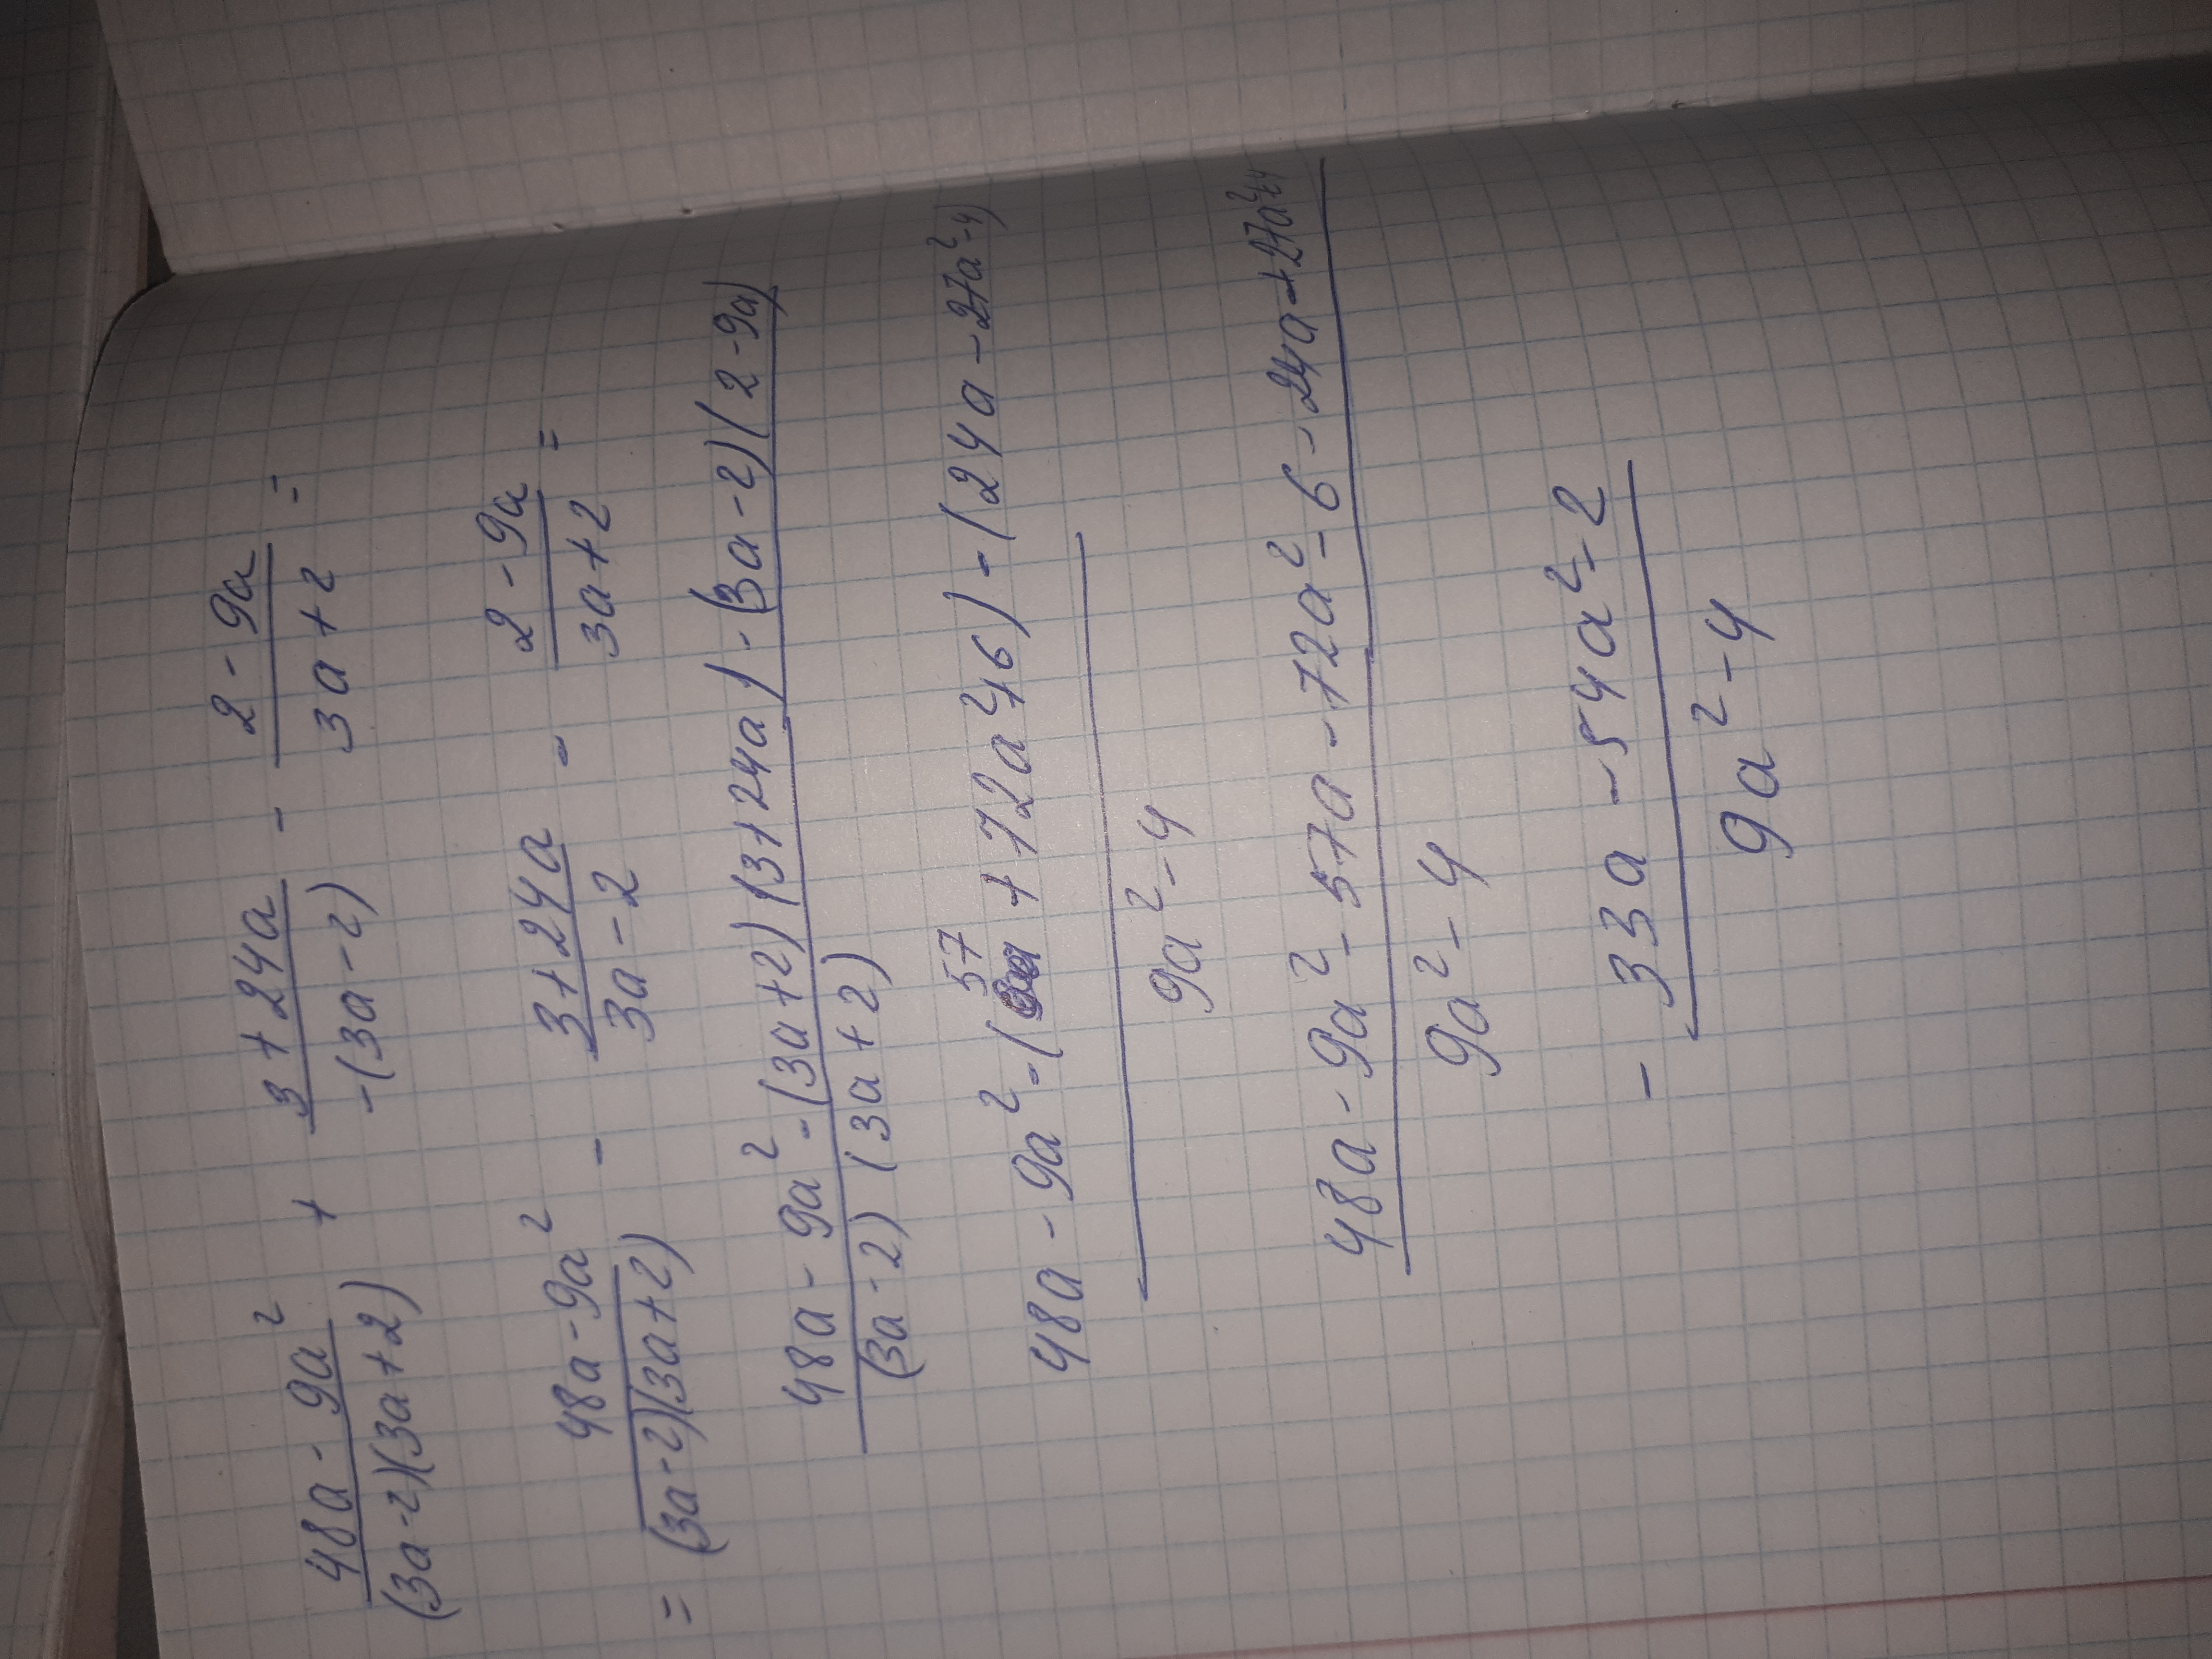 48a - 9a² / (3a-2)(3a+2) + 3+24a / -(3a-2) - 2-9a / 3a+2 =
= 48a-9a² / (3a-2)(3a+2) - 3+24a / 3a-2 - 2-9a / 3a+2 =
48a - 9a² - (3a+2)(3+24a) - (3a-2)(2-9a) / (3a-2)(3a+2)
48a - 9a² - (57a + 72a²+6) - (24a - 27a²-4) / 9a²-4
48a - 9a² - 57a - 72a² - 6 - 24a + 27a²+4 / 9a² - 4
- 33a - 54a² - 2 / 9a² - 4